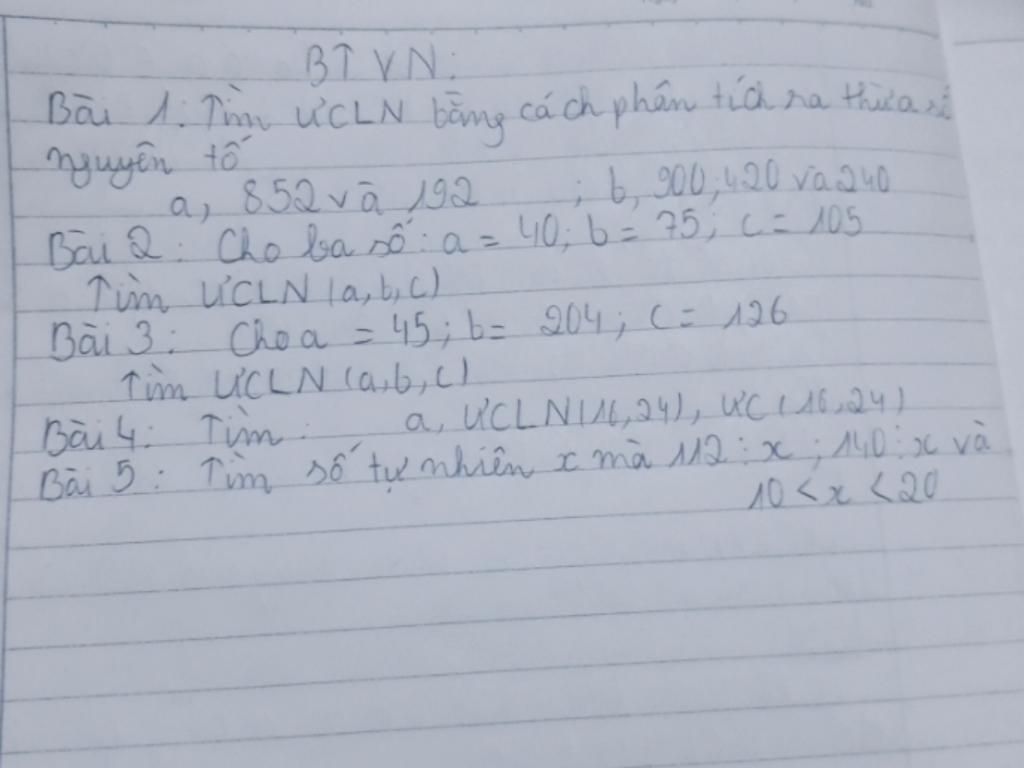 BTVN:
Bài 1: Tìm ƯCLN bằng cách phân tích ra thừa số
nguyên tố
a, 852 và 192 ; b, 900, 420 và 240
Bài 2: Cho ba số: a = 40; b = 75; c = 105
Tìm ƯCLN (a,b,c)
Bài 3: Cho a = 45; b = 204; c = 126
Tìm ƯCLN (a,b,c)
Bài 4: Tìm: a, ƯCLN (16,24), ƯC (16,24)
Bài 5: Tìm số tự nhiên x mà 112 ⋮ x ; 140 ⋮ x và
10 < x < 20